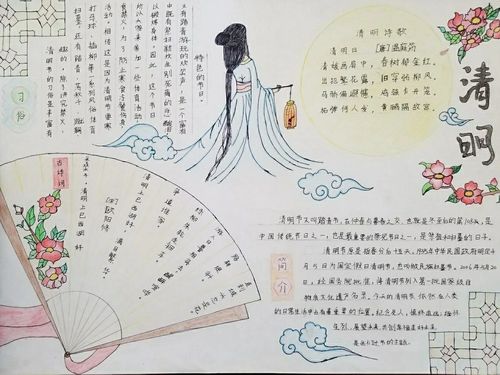 清明
清明诗歌
清明日 [唐]温庭筠
清娥画扇中，春树郁金红。
出犯繁花露，归穿弱柳风。
马骄偏避幰，鸡骇乍开笼。
柘弹何人发，黄鹂隔故宫。
习俗
清明节的习俗是丰富有
趣的。除了讲究禁火、
扫墓，还有踏青、荡秋千、蹴鞠
打马球、插柳等一系列风俗体育
活动。相传这是因为清明节要寒
食禁火，为了防止寒食冷餐伤身
所以人们来参加一些体育活动，
以锻炼身体。因此，这个节日
中既有祭扫新坟生死离别的悲酸泪
又有踏青游玩的欢笑声，是一个富有
特色的节日。
古诗词
采桑子·清明上巳西湖好
[宋]欧阳修
清明上巳西湖好，满目繁华。
争道谁家。
绿柳朱轮走钿车。
游人日暮相将去，
醒醉喧哗。
路转堤斜。
直到城头总是花。
简介
清明节又叫踏青节，在仲春与暮春之交，也就是冬至后的第108天，是
中国传统节日之一，也是最重要的祭祀节日之一，是祭祖和扫墓的日子。
清明节原是指春分后十五天，1935年中华民国政府明定4
月5日为国定假日清明节，也叫做民族扫墓节。2006年5月20
日，经国务院批准，将清明节列入第一批国家级非
物质文化遗产名录。今天的清明节依然在人类
的日常生活中占有着重要的位置，纪念先人，
先烈，展望未来，共创幸福美好未来
的主题。